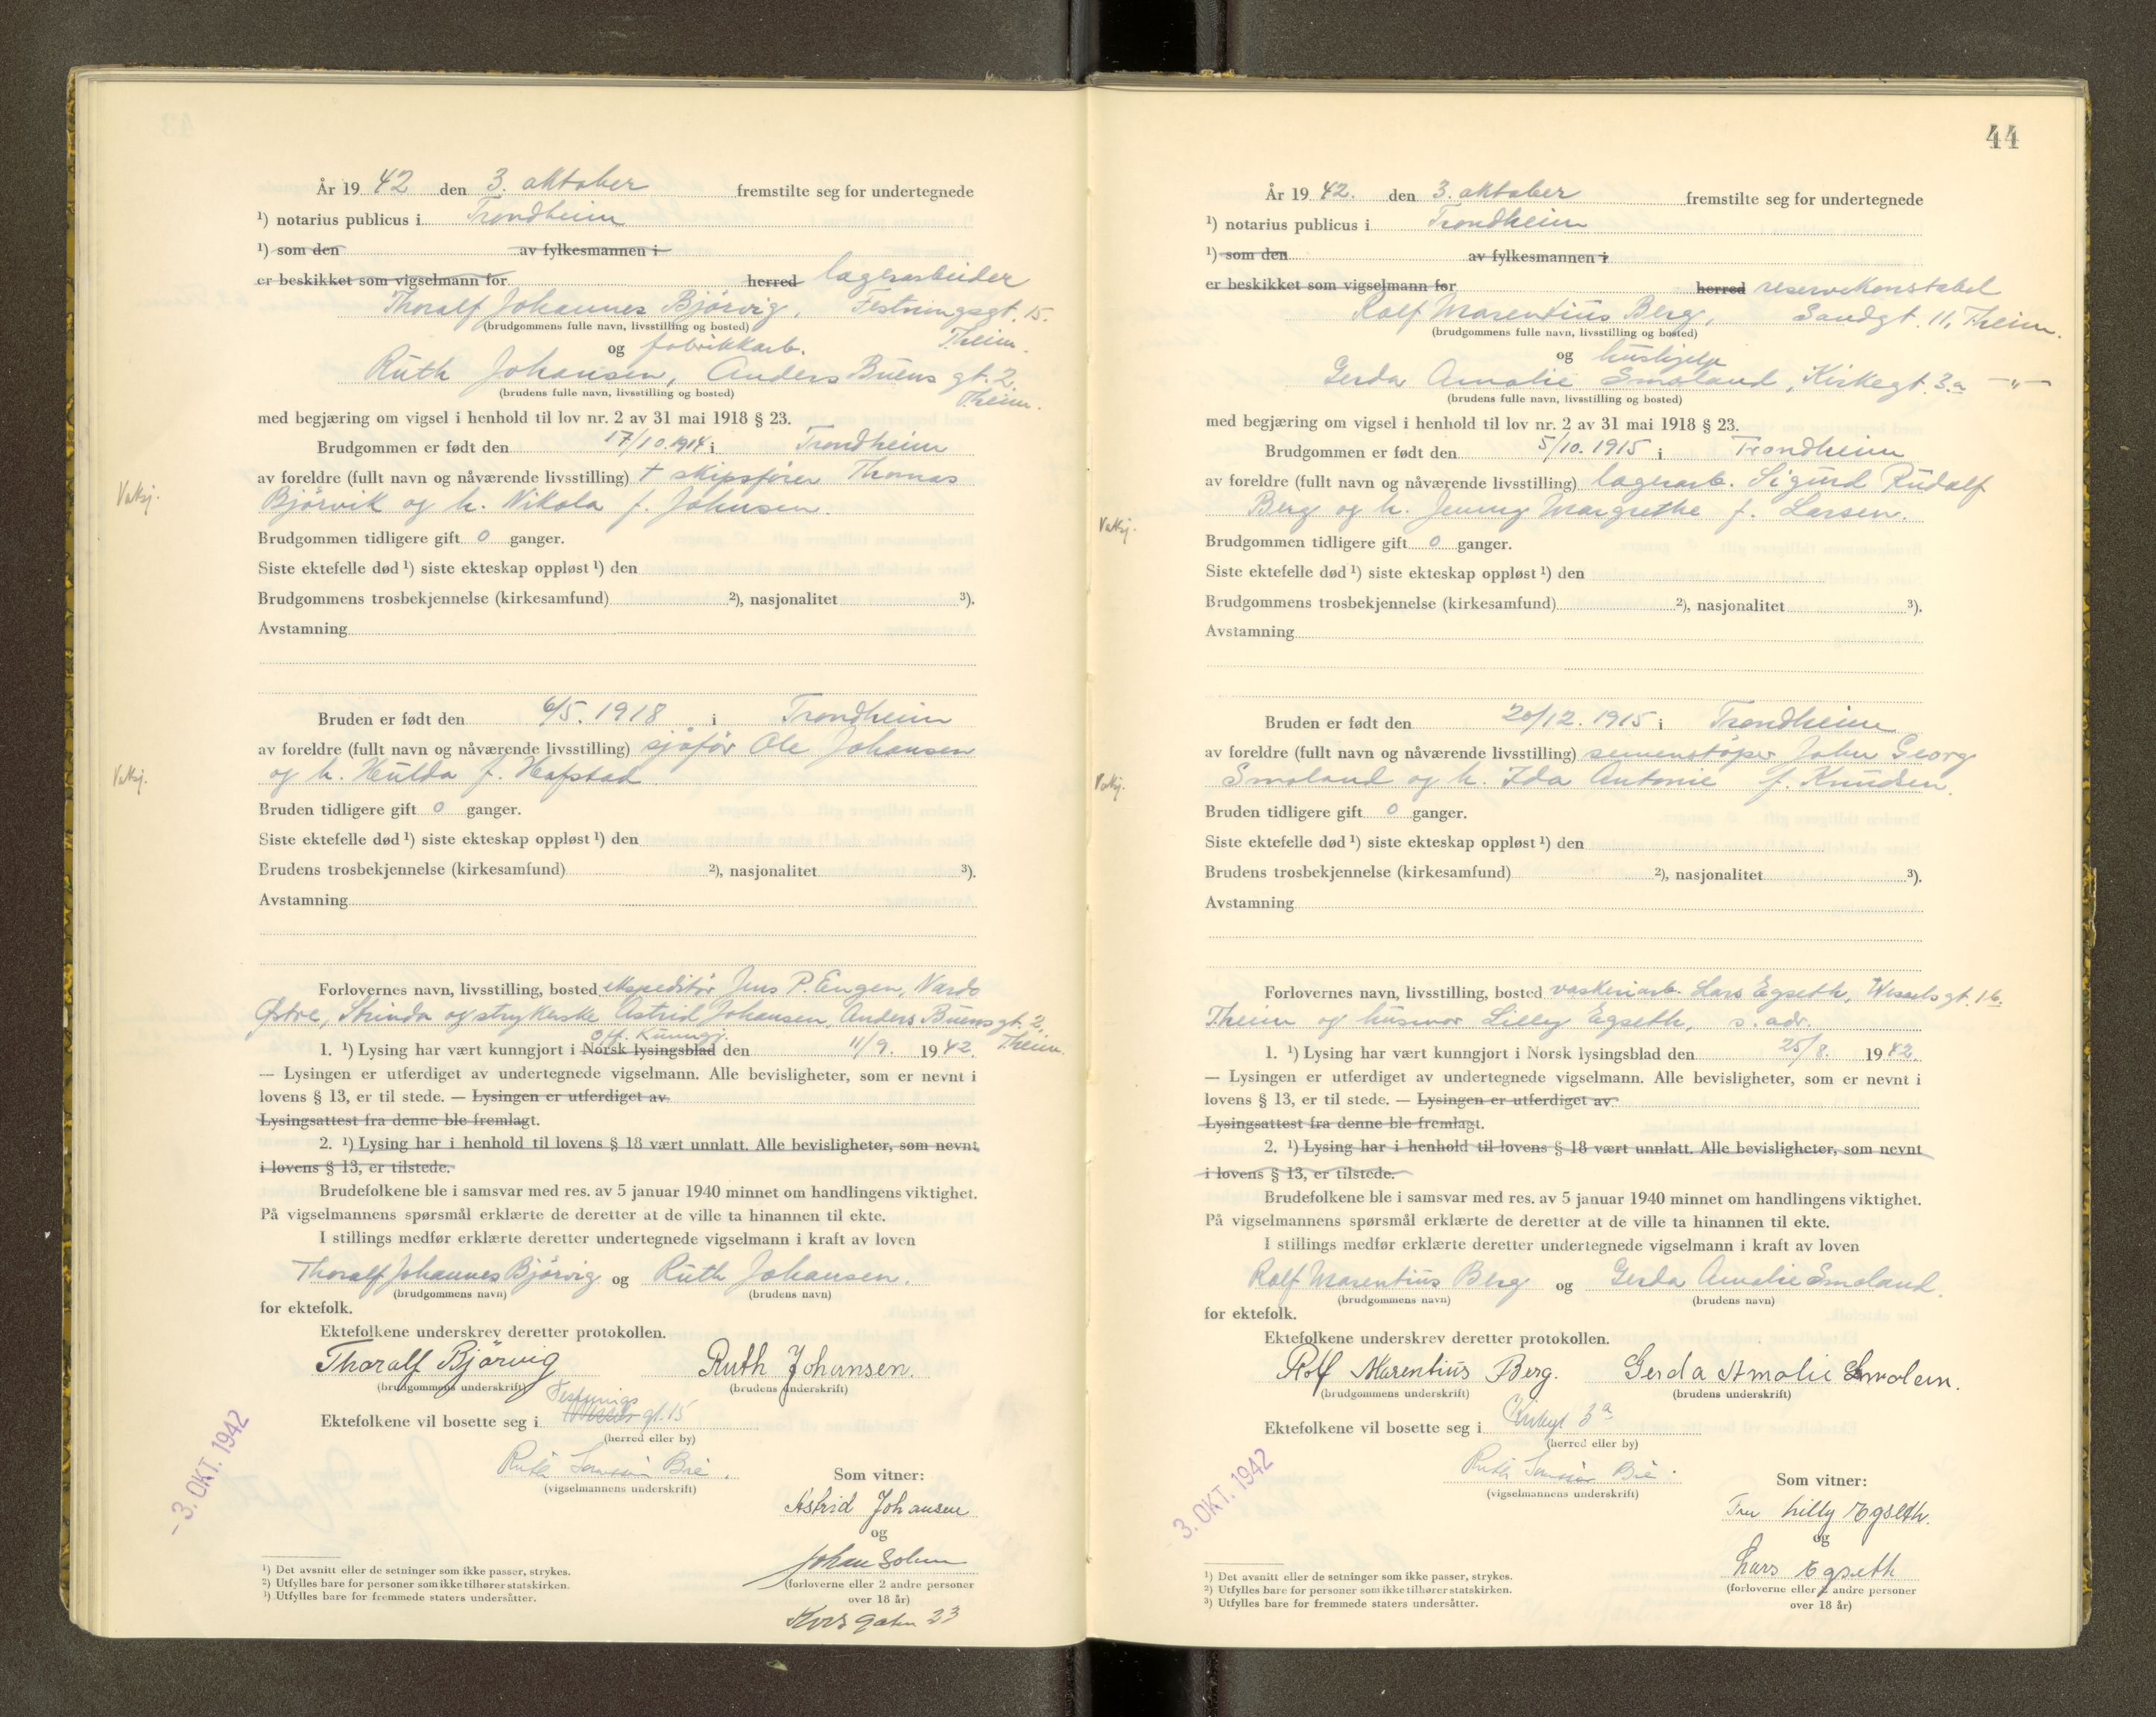 År 19 42 den 3. oktober fremstilte seg for undertegnede
¹) notarius publicus i Trondheim
¹) som den av fylkesmannen i
er beskikket som vigselmann for herred lagerarbeider
Thoralf Johannes Bjørvig, Festningsgt. 15.
(brudgommens fulle navn, livsstilling og bosted) Theim.
og fabrikkarb.
Ruth Johansen, Anders Buens gt. 2.
(brudens fulle navn, livsstilling og bosted) Theim.
med begjæring om vigsel i henhold til lov nr. 2 av 31 mai 1918 § 23.
Brudgommen er født den 17/10.1914 i Trondheim
av foreldre (fullt navn og nåværende livsstilling) † skipsfører Thomas
Vaksj.
Bjørvik og h. Nikola f. Johnsen.
Brudgommen tidligere gift 0 ganger.
Siste ektefelle død ¹) siste ekteskap oppløst ¹) den
Brudgommens trosbekjennelse (kirkesamfund) ²), nasjonalitet ³).
Avstamning
Bruden er født den 6/5. 1918 i Trondheim
av foreldre (fullt navn og nåværende livsstilling) sjåfør Ole Johansen
Vaksj.
og h. Hulda f. Hafstad
Bruden tidligere gift 0 ganger.
Siste ektefelle død ¹) siste ekteskap oppløst ¹) den
Brudens trosbekjennelse (kirkesamfund) ²), nasjonalitet ³).
Avstamning
Forlovernes navn, livsstilling, bosted ekspeditør Jens P. Engen, Nardo
Østre, Strinda og strykerske Astrid Johansen, Anders Buens gt. 2.
Off. Kunngj.
1. ¹) Lysing har vært kunngjort i Norsk lysingsblad den 11/9. 1942. Theim.
— Lysingen er utferdiget av undertegnede vigselmann. Alle bevisligheter, som er nevnt i
lovens § 13, er til stede. — Lysingen er utferdiget av
Lysingsattest fra denne ble fremlagt.
2. ¹) Lysing har i henhold til lovens § 18 vært unnlatt. Alle bevisligheter, som nevnt
i lovens § 13, er tilstede.
Brudefolkene ble i samsvar med res. av 5 januar 1940 minnet om handlingens viktighet.
På vigselmannens spørsmål erklærte de deretter at de ville ta hinannen til ekte.
I stillings medfør erklærte deretter undertegnede vigselmann i kraft av loven
Thoralf Johannes Bjørvig og Ruth Johansen.
(brudgommens navn) (brudens navn)
for ektefolk.
Ektefolkene underskrev deretter protokollen.
Thoralf Bjørvig Ruth Johansen.
(brudgommens underskrift) (brudens underskrift)
Festnings
Ektefolkene vil bosette seg i gt. 15
(herred eller by)
Ruth Bie.
(vigselmannens underskrift)
Som vitner:
Astrid Johansen
og
Johan Solem
(forloverne eller 2 andre personer
over 18 år)
Korsgaten 23
-3. OKT. 1942
¹) Det avsnitt eller de setninger som ikke passer, strykes.
²) Utfylles bare for personer som ikke tilhører statskirken.
³) Utfylles bare for fremmede staters undersåtter.
44
År 19 42. den 3. oktober fremstilte seg for undertegnede
¹) notarius publicus i Trondheim
¹) som den av fylkesmannen i
er beskikket som vigselmann for herred reservekonstabel
Rolf Marentius Berg, Sandgt. 11, Theim.
(brudgommens fulle navn, livsstilling og bosted)
og hushjelp
Gerda Amalie Smoland, Kirkegt. 3.a — " —
(brudens fulle navn, livsstilling og bosted)
med begjæring om vigsel i henhold til lov nr. 2 av 31 mai 1918 § 23.
Brudgommen er født den 5/10. 1915 i Trondheim
av foreldre (fullt navn og nåværende livsstilling) lagerarb. Sigurd Rudolf
Vaksj.
Berg og h. Jenny Margrethe f. Larsen.
Brudgommen tidligere gift 0 ganger.
Siste ektefelle død ¹) siste ekteskap oppløst ¹) den
Brudgommens trosbekjennelse (kirkesamfund) ²), nasjonalitet ³).
Avstamning
Bruden er født den 20/12. 1915 i Trondheim
av foreldre (fullt navn og nåværende livsstilling) sementstøper John Georg
Vaksj.
Smoland og h. Ida Antonie f. Knudsen.
Bruden tidligere gift 0 ganger.
Siste ektefelle død ¹) siste ekteskap oppløst ¹) den
Brudens trosbekjennelse (kirkesamfund) ²), nasjonalitet ³).
Avstamning
Forlovernes navn, livsstilling, bosted vaskeriarb. Lars Egseth, Wessels gt. 16.
Theim og husmor Lilly Egseth, s. adr.
1. ¹) Lysing har vært kunngjort i Norsk lysingsblad den 25/8. 1942.
— Lysingen er utferdiget av undertegnede vigselmann. Alle bevisligheter, som er nevnt i
lovens § 13, er til stede. — Lysingen er utferdiget av
Lysingsattest fra denne ble fremlagt.
2. ¹) Lysing har i henhold til lovens § 18 vært unnlatt. Alle bevisligheter, som nevnt
i lovens § 13, er tilstede.
Brudefolkene ble i samsvar med res. av 5 januar 1940 minnet om handlingens viktighet.
På vigselmannens spørsmål erklærte de deretter at de ville ta hinannen til ekte.
I stillings medfør erklærte deretter undertegnede vigselmann i kraft av loven
Rolf Marentius Berg og Gerda Amalie Smoland.
(brudgommens navn) (brudens navn)
for ektefolk.
Ektefolkene underskrev deretter protokollen.
Rolf Marentius Berg. Gerda Amalie Smolan.
(brudgommens underskrift) (brudens underskrift)
Ektefolkene vil bosette seg i Kirkegt 3a
(herred eller by)
Ruth Bie.
(vigselmannens underskrift)
Som vitner:
Fru Lilly Egseth.
og
Lars Egseth
(forloverne eller 2 andre personer
over 18 år)
-3. OKT. 1942
¹) Det avsnitt eller de setninger som ikke passer, strykes.
²) Utfylles bare for personer som ikke tilhører statskirken.
³) Utfylles bare for fremmede staters undersåtter.